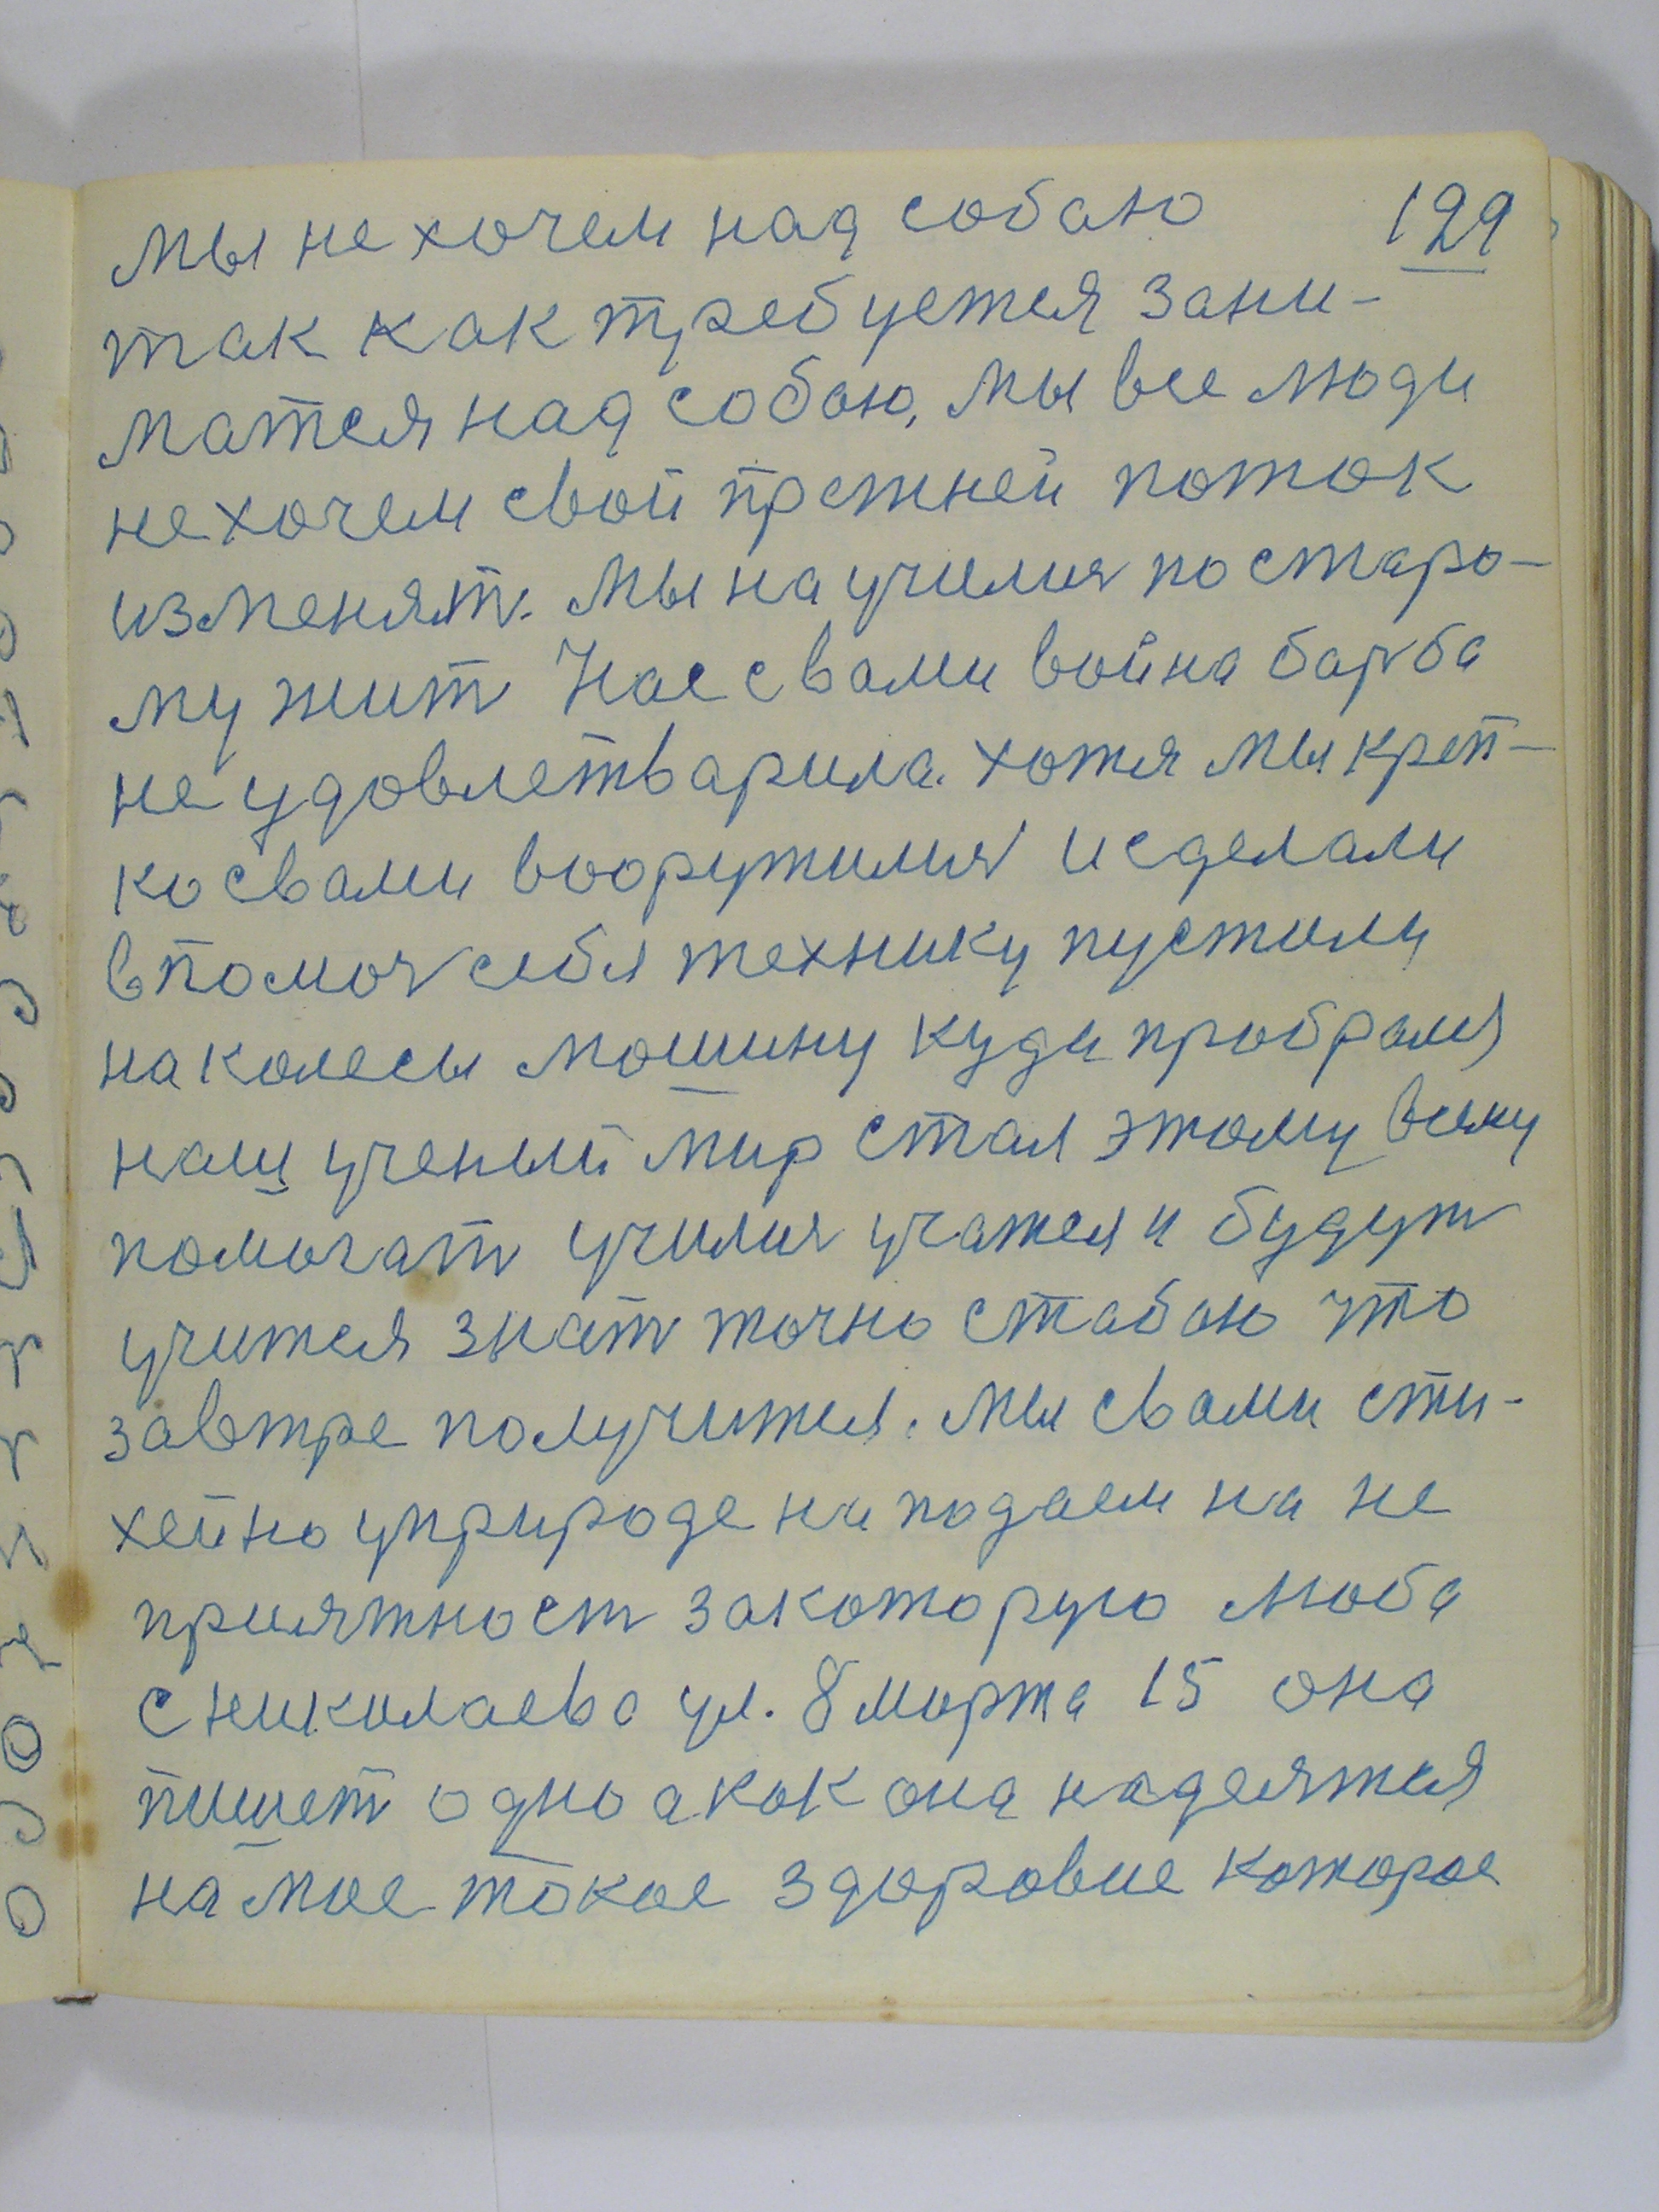 129
мы не хочем над собаю
так как требуется зани-
матся над собою, мы все люди
не хочем свой прежней поток
изменят. Мы научился по старо-
му жит Нас с вами война барба
не удовлетварила. хотя мы креп-
ко с вами вооружился и сделали
в помоч себя технику пустили
на колесы мошину куда пробрался
наш ученый мир стал этому всяму
помогат учился учатся и будут
учится знат точно стабою что
завтре получится. Мы с вами сти-
хейно у природе на подаем на не
приятност за которую Люба
с николаева ул. 8 марта 15 она
пишет одно а как она надеятся
на мое такое здоровие которое